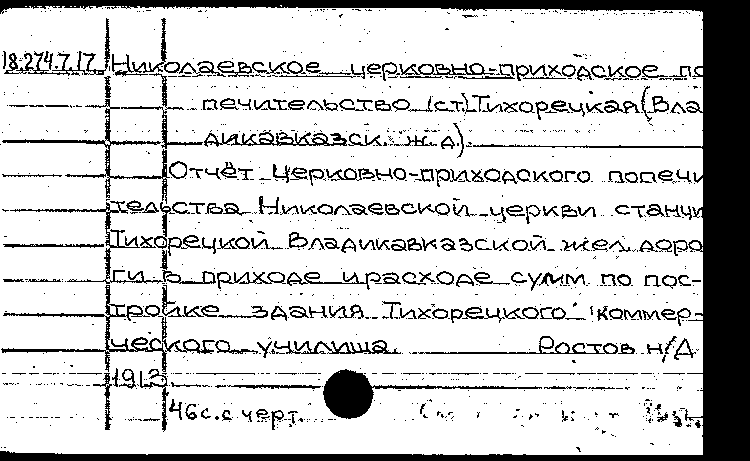 18.274.7.17 Николаевское церковно-приходское по
печительство (ст) Тихорецкая (Вла
дикавказск. ж.д).
Отчёт Церковно-приходского попечи
тельства Николаевской церкви станци
Тихорецкой Владикавказской жел. доро
ги о приходе и расходе сумм по пос-
тройке здания Тихорецкого коммер-
ческого училища. Ростов н/Д
1913.
46с. с черт.